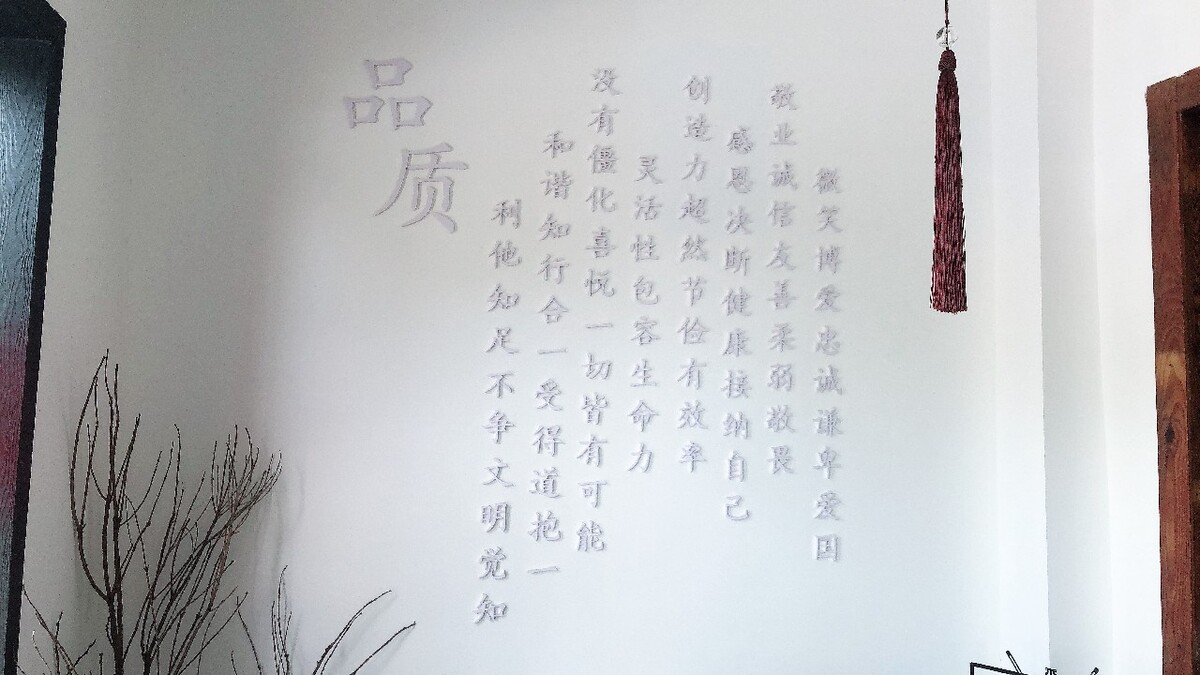 品质
利他知足不争文明觉知
和谐知行合一受得道抱一
没有僵化喜悦一切皆有可能
灵活性包容生命力
创造力超然节俭有效率
感恩决断健康接纳自己
敬业诚信友善柔弱敬畏
微笑博爱忠诚谦卑爱国